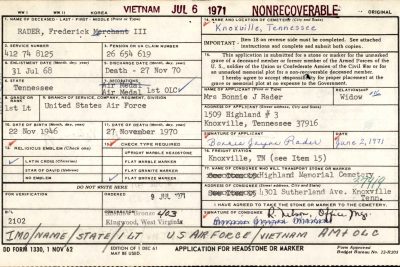 WW I WW II KOREA VIETNAM JUL 6 1971 NONRECOVERABLE
1. NAME OF DECEASED - LAST - FIRST - MIDDLE (Print or Type)
RADER, Frederick Merchant III
14. NAME AND LOCATION OF CEMETERY (City and State)
Knoxville, Tennessee
2. SERVICE NUMBER
412 74 8125
3. PENSION OR VA CLAIM NUMBER
26 654 619
IMPORTANT - Item 18 on reverse side must be completed. See attached instructions and complete and submit both copies.
4. ENLISTMENT DATE (Month, day, year)
31 Jul 68
5. DISCHARGE DATE (Month, day, year)
Death - 27 Nov 70
15. This application is submitted for a stone or marker for the unmarked grave of a deceased member or former member of the Armed Forces of the U. S., soldiers of the Union or Confederate Armies of the Civil War or for an unmarked memorial plot for a non-recoverable deceased member.
I hereby agree to accept responsibility for proper placement at the grave or memorial plot at no expense to the Government.
6. STATE
Tennessee
Air Medal
Air Medal 1st OLC
8. GRADE OR RANK
1st Lt
9. BRANCH OF SERVICE, COMPANY, REGIMENT, DIVISION
United States Air Force
NAME OF APPLICANT (Print or Type)
Mrs Bonnie J Rader
RELATIONSHIP
Widow
ADDRESS OF APPLICANT (Street address, City and State)
1509 Highland # 3
Knoxville, Tennessee 37916
10. DATE OF BIRTH (Month, day, year)
22 Nov 1946
11. DATE OF DEATH (Month, day, year)
27 November 1970
SIGNATURE OF APPLICANT
Bonnie Jayne Rader
DATE
June 2, 1971
12. RELIGIOUS EMBLEM (Check one)
LATIN CROSS (Christian)
STAR OF DAVID (Jewish)
NO EMBLEM
13. CHECK TYPE REQUIRED
UPRIGHT MARBLE HEADSTONE
FLAT MARBLE MARKER
FLAT GRANITE MARKER
FLAT BRONZE MARKER
16. FREIGHT STATION
Knoxville, TN (see Item 15)
(see Item 15) Highland Memorial Cemetery
4301 Sutherland Ave. Knoxville Tenn.
37919
DO NOT WRITE HERE
FOR VERIFICATION
9 JUL 1971
I HAVE AGREED TO TAKE THE STONE OR MARKER TO THE CEMETERY.
B/L
2102
Bronze 403
Kingwood, West Virginia
R. Nelson, Office Mg.
IMO/NAME/STATE/1 LT US AIR FORCE/VIETNAM AM & OLC
DD FORM 1330, 1 NOV 62
EDITION OF 1 DEC 61 MAY BE USED.
APPLICATION FOR HEADSTONE OR MARKER
Form Approved
Budget Bureau No. 12-R205